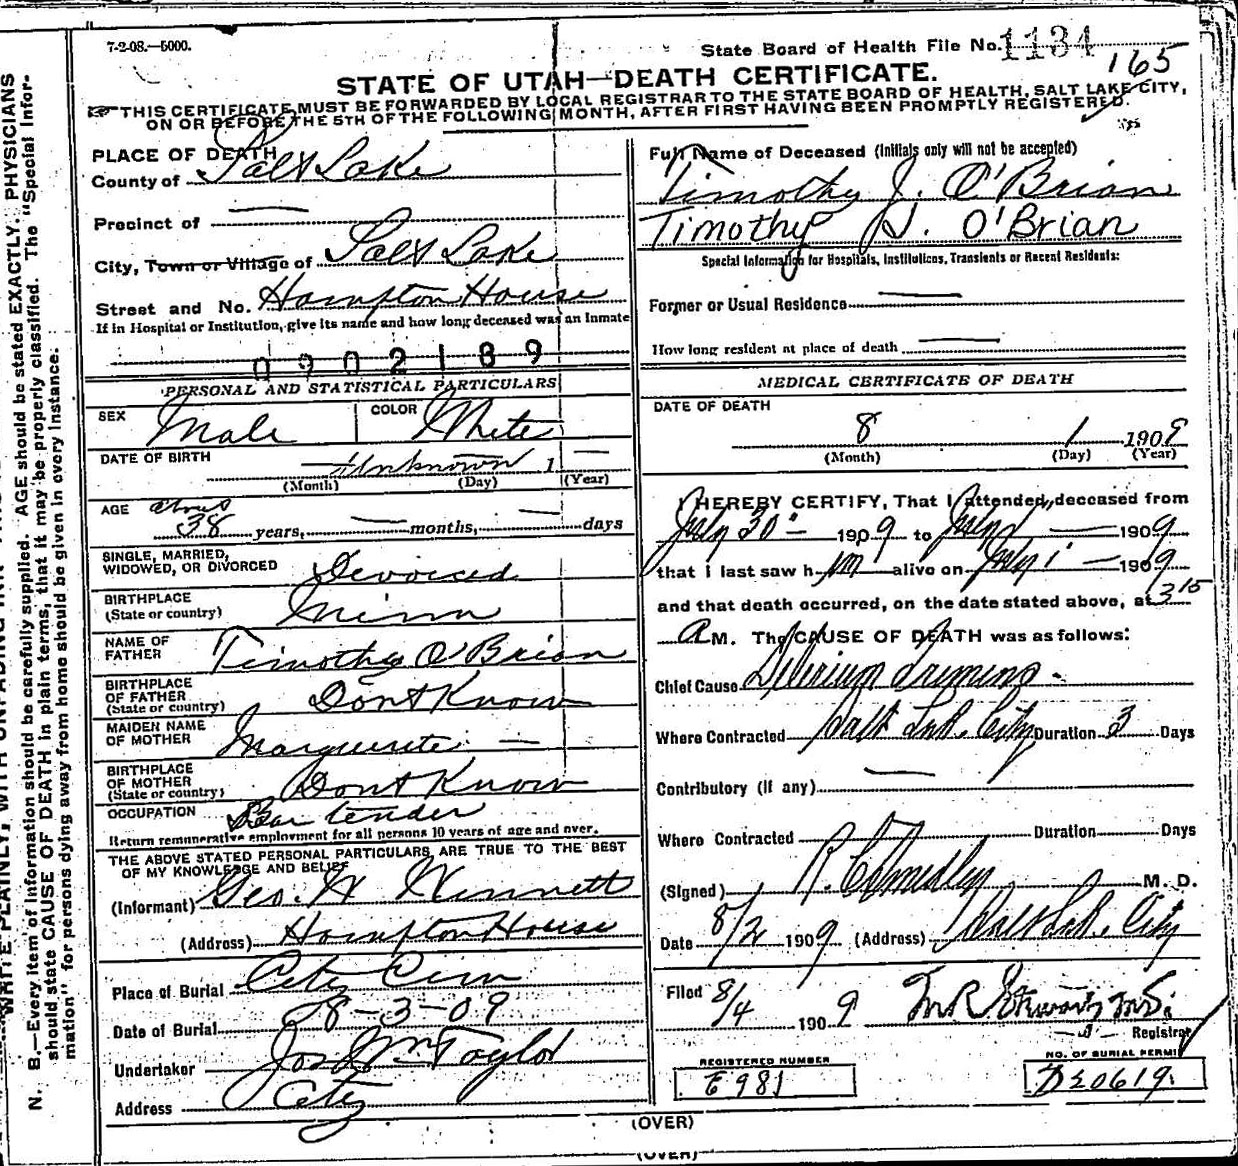 7-2-08.—5000.
State Board of Health File No. 1134
165
STATE OF UTAH—DEATH CERTIFICATE.
THIS CERTIFICATE MUST BE FORWARDED BY LOCAL REGISTRAR TO THE STATE BOARD OF HEALTH, SALT LAKE CITY,
ON OR BEFORE THE 5TH OF THE FOLLOWING MONTH, AFTER FIRST HAVING BEEN PROMPTLY REGISTERED.
PLACE OF DEATH
County of Salt Lake
Precinct of —
City, Town or Village of Salt Lake
Street and No. Hampton House
If in Hospital or Institution, give its name and how long deceased was an Inmate
0902189
PERSONAL AND STATISTICAL PARTICULARS
SEX Male COLOR White
DATE OF BIRTH — Unknown 1 —
(Month) (Day) (Year)
AGE about
38 years, — months, — days
SINGLE, MARRIED,
WIDOWED, OR DIVORCED Divorced
BIRTHPLACE
(State or country) Minn
NAME OF
FATHER Timothy O'Brian
BIRTHPLACE
OF FATHER
(State or country) Dont Know
MAIDEN NAME
OF MOTHER Marguerite —
BIRTHPLACE
OF MOTHER
(State or country) Dont Know
OCCUPATION Bar tender
Return remunerative employment for all persons 10 years of age and over.
THE ABOVE STATED PERSONAL PARTICULARS ARE TRUE TO THE BEST
OF MY KNOWLEDGE AND BELIEF
(Informant) Geo. H
(Address) Hampton House
Place of Burial City Cem
Date of Burial 8-3-09
Undertaker Jos Wm Taylor
Address City
Full Name of Deceased (Initials only will not be accepted)
Timothy J. O'Brian
Timothy J. O'Brian
Special Information for Hospitals, Institutions, Transients or Recent Residents:
Former or Usual Residence —
How long resident at place of death —
MEDICAL CERTIFICATE OF DEATH
DATE OF DEATH
8 1 1909
(Month) (Day) (Year)
I HEREBY CERTIFY, That I attended deceased from
July 30 — 1909 to — 1909
that I last saw h im alive on July 1 — 1909
and that death occurred, on the date stated above, at 3 15
A M. The CAUSE OF DEATH was as follows:
Chief Cause Delirium
Where Contracted Salt Lake City Duration 3 Days
Contributory (if any) —
Where Contracted Duration Days
(Signed) M. D.
Date 8/2 1909 (Address) Salt Lake City
Filed 8/4 1909
Registrar
REGISTERED NUMBER
E 981
NO. OF BURIAL PERMIT
D50619
(OVER)
(OVER)
N. B.—Every item of information should be carefully supplied. AGE should be stated EXACTLY. PHYSICIANS
should state CAUSE OF DEATH in plain terms, that it may be properly classified. The "Special Infor-
mation" for persons dying away from home should be given in every instance.